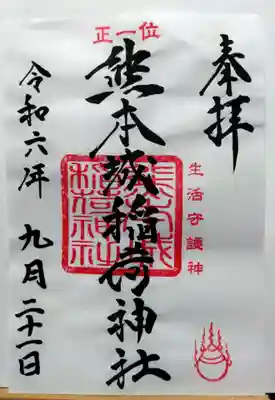 奉拝
生活守護神
正一位
熊本城稲荷神社
令和六年 九月 二十一日